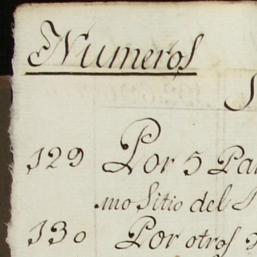 Numeros
129 Por 5
mo Sitio del
130 Por otros